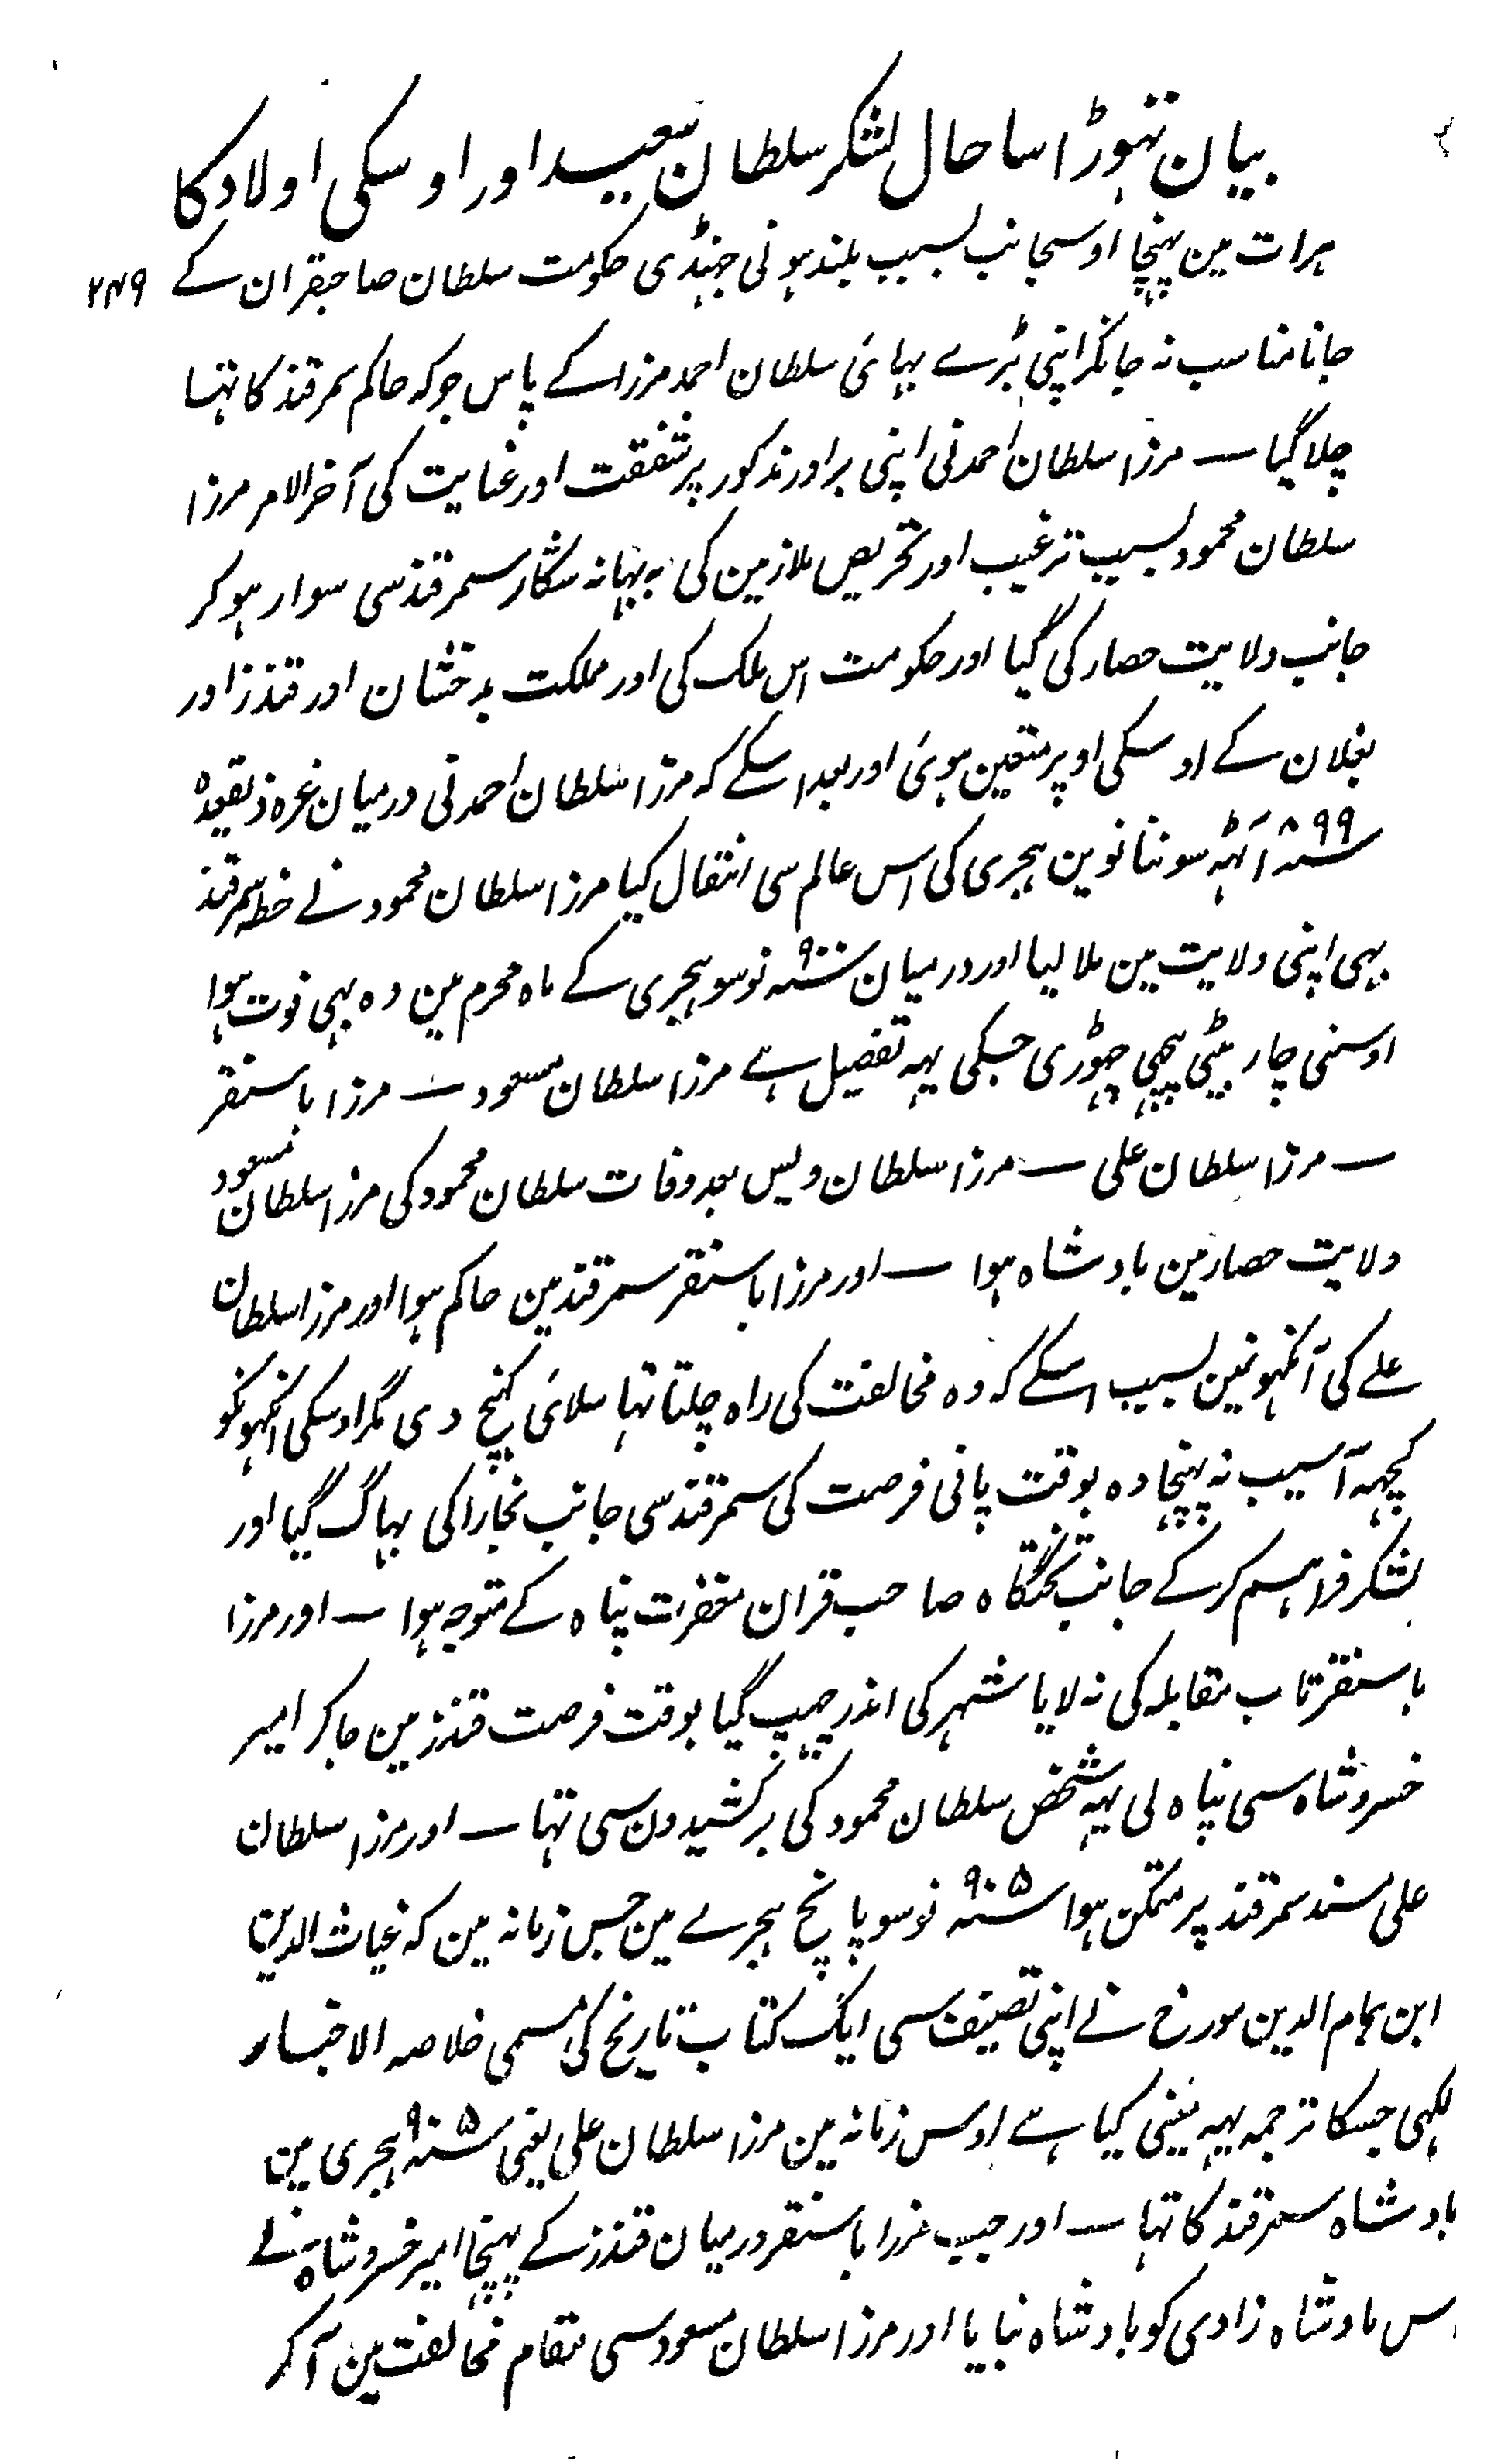 بیان تہوڑا سا حال لشکر سلطان سعید اور اوسکی اولاد کا
ہرات مین پہنچا اوسجانب بسبب بلند ہونی جہنڈی حکومت سلطان صاحبقران کے ۲۴۹
جانا مناسب نہ جانکر اپنی بڑے بہائی سلطان احمد مرزا کے پاس جو کہ حاکم سمرقند کا تہا
چلا گیا ــ مرزا سلطان احمد نی اپنی برادر مذکور پر شفقت اور عنایت کی آخر الامر مرزا
سلطان محمود بسبب ترغیب اور تحریص ملازمین کی بہ بہانہ شکار سمرقند سی سوار ہو کر
جانب ولایت حصار کی گیا اور حکومت اس ملک کی اور مملکت بدخشان اور قندز اور
بغلان کے اوسکی اوپر متعین ہوئی اور بعد اسکے کہ مرزا سلطان احمد نی درمیان غرہ ذیقعدہ
سنہ ۸۹۹ آٹہہ سو ننانوین ہجری کی اس عالم سی انتقال کیا مرزا سلطان محمود نے خطہ سمرقند
بہی اپنی ولایت مین ملا لیا اور درمیان سنہ ۹۰۰ نو سو ہجری کے ماہ محرم مین وہ بہی فوت ہوا
اوسنی چار بیٹی پیچہی چہوڑی جسکی یہہ تفصیل ہے مرزا سلطان مسعود ــ مرزا باسنقر
ــ مرزا سلطان علی ــ مرزا سلطان ویس بعد وفات سلطان محمود کی مرزا سلطان مسعود
ولایت حصار مین بادشاہ ہوا ــ اور مرزا باسنقر سمرقند مین حاکم ہوا اور مرزا سلطان
علے کی آنکہونمین بسبب اسکے کہ وہ مخالفت کی راہ چلتا تہا سلائی کہنچ دی مگر اوسکی انکہونکو
کچہہ آسیب نہ پہنچا وہ بوقت پانی فرصت کی سمرقند سی جانب بخارا کی بہاگ گیا اور
لشکر فراہم کر کے جانب تختگاہ صاحب قران مغفرت پناہ کے متوجہ ہوا ــ اور مرزا
باسنقر تاب مقابلہ کی نہ لایا شہر کی اندر چہپ گیا بوقت فرصت قندز مین جا کر امیر
خسرو شاہ سی پناہ لی یہہ شخص سلطان محمود کی برکشیدون سی تہا ــ اور مرزا سلطان
علی مسند سمرقند پر متمکن ہوا سنہ ۹۰۵ نو سو پانچ ہجرے مین جس زمانہ مین کہ غیاث الدین
ابن ہمام الدین مورخ نے اپنی تصنیف سی ایک کتاب تاریخ کی مسمی خلاصہ الاخبار
لکہی جسکا ترجمہ یہہ مینی کیا ہے اوس زمانہ مین مرزا سلطان علی یعنی سنہ ۹۰۵ ہجری مین
بادشاہ سمرقند کا تہا ــ اور جب مرزا باسنقر درمیان قندز کے پہنچا امیر خسرو شاہ نے
اس بادشاہ زادی کو بادشاہ بنایا اور مرزا سلطان مسعود سی مقام مخالفت مین آ کر